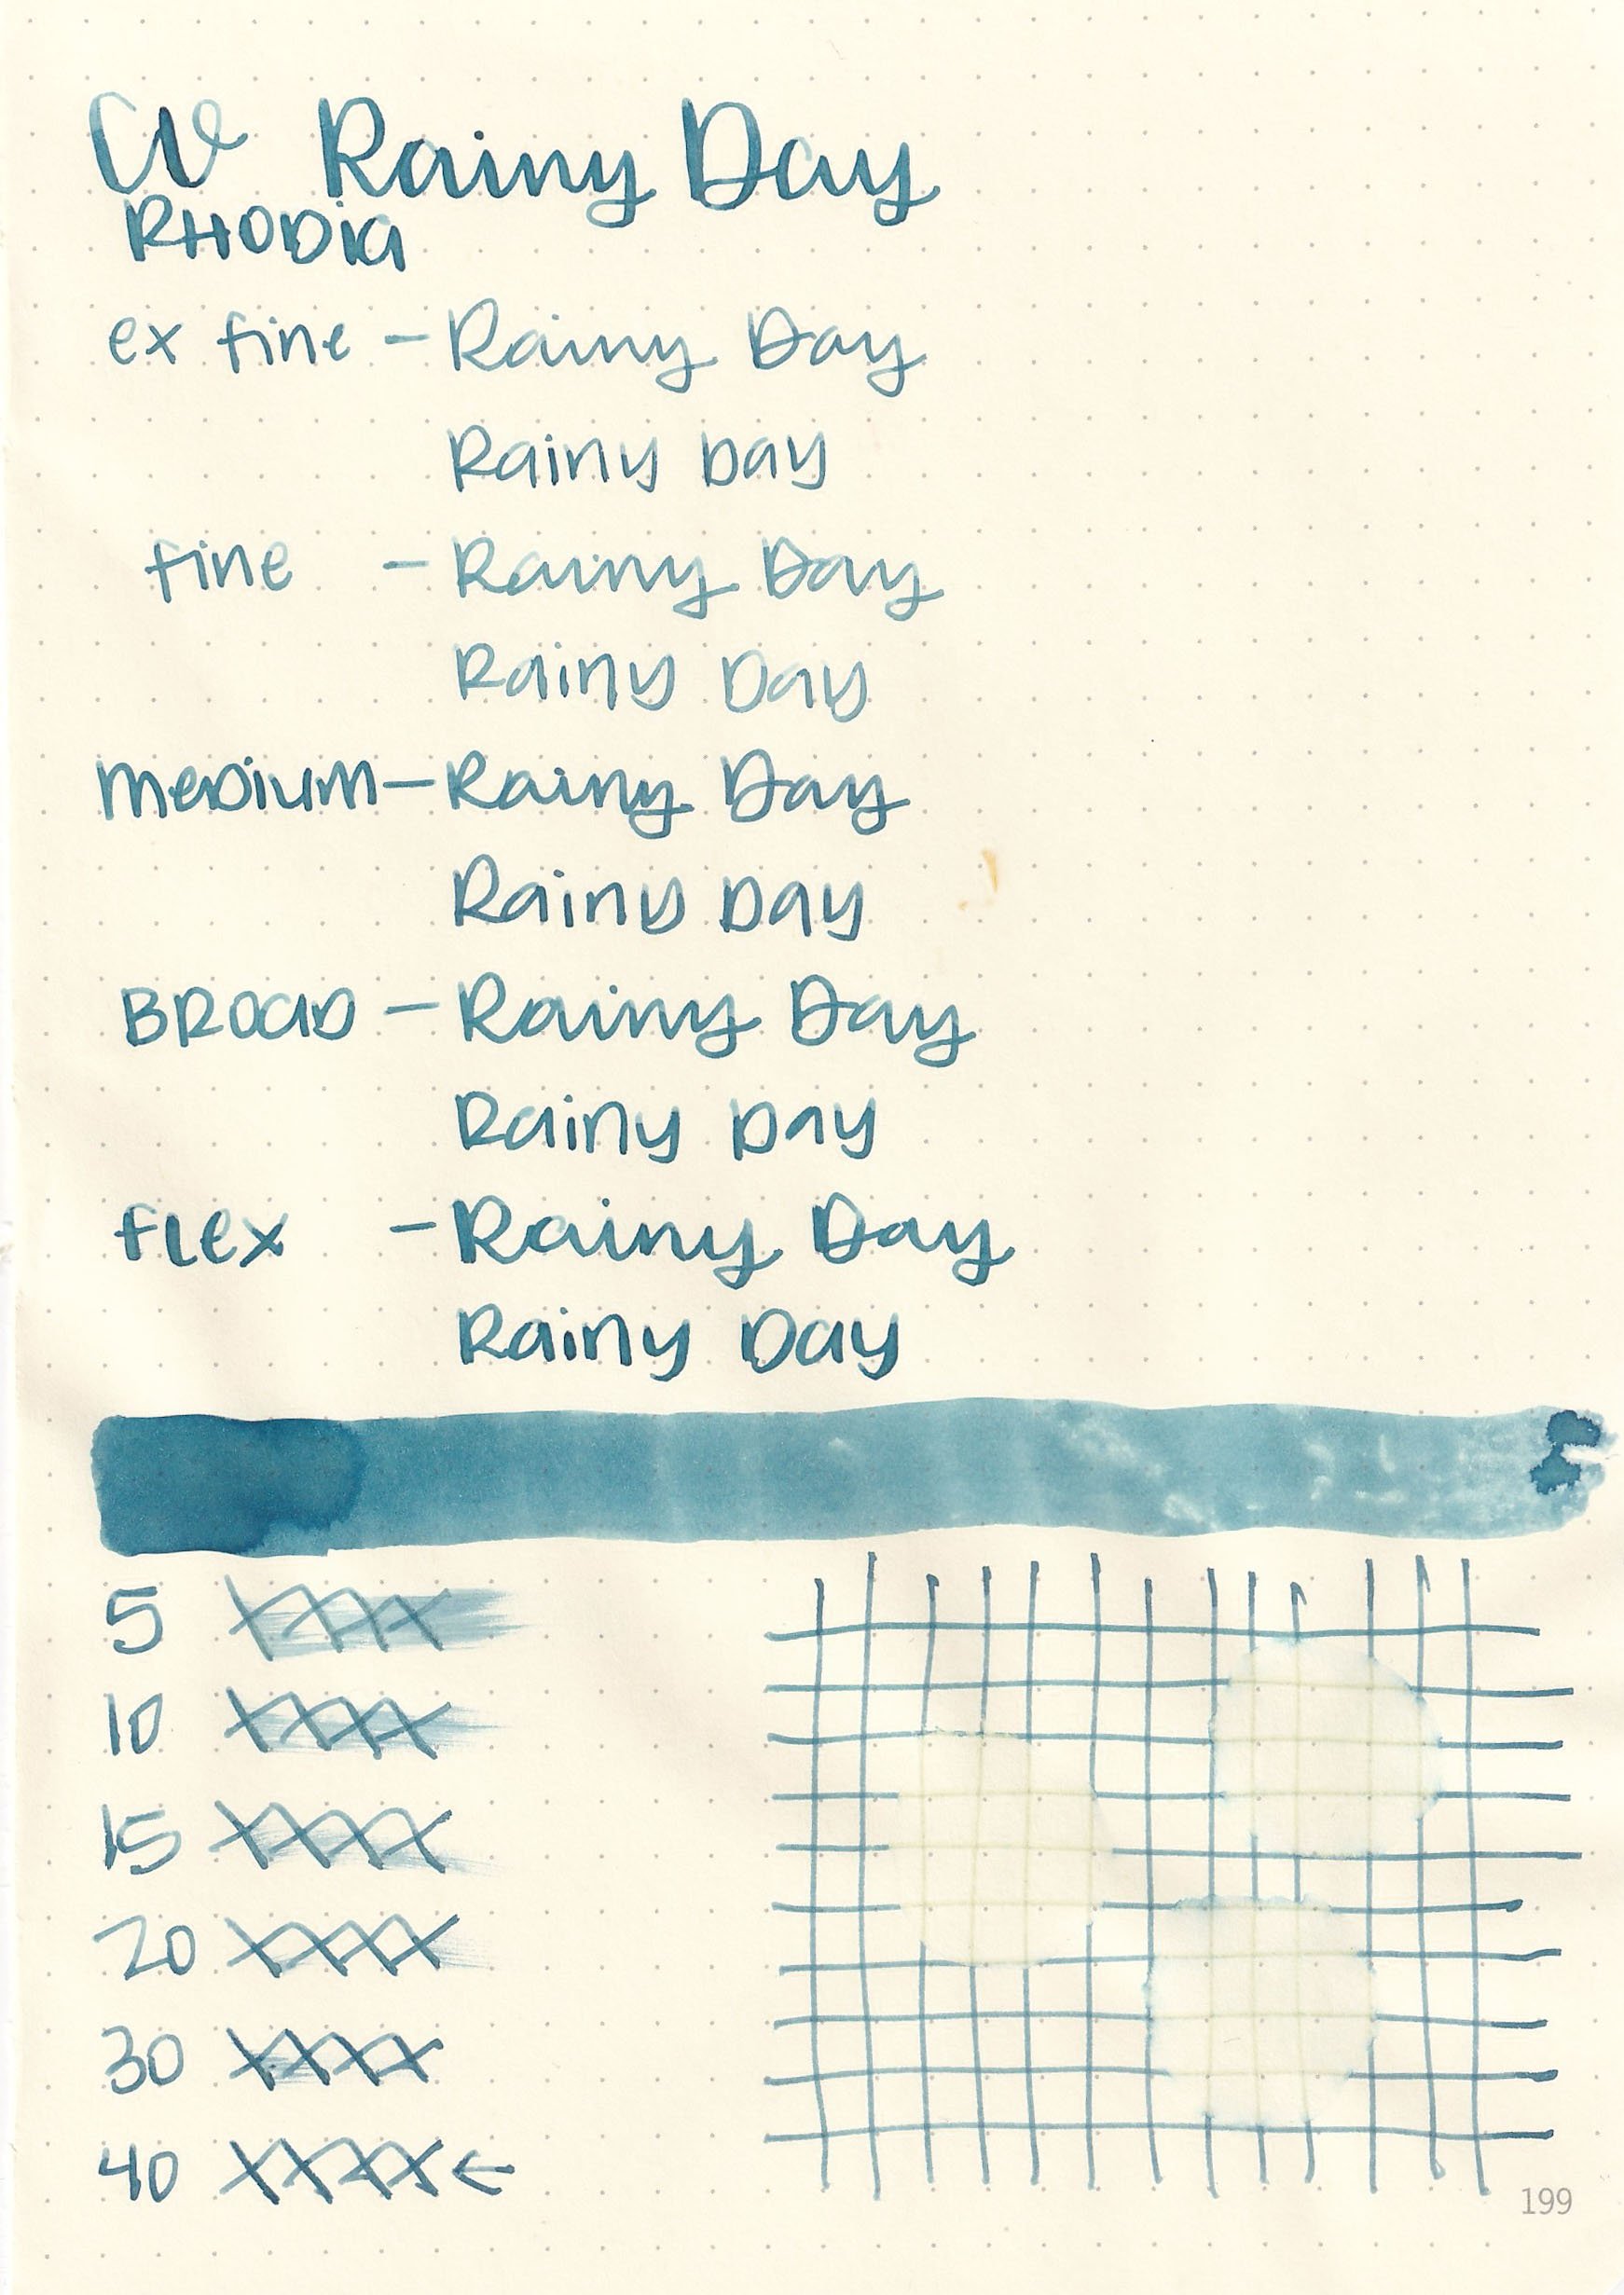 CV Rainy Day
RHODIA
ex fine - Rainy Day
Rainy Day
fine - Rainy Day
Rainy Day
MEDIUM - Rainy Day
Rainy Day
BROAD - Rainy Day
Rainy Day
flex - Rainy Day
Rainy Day
5 XXXX
10 XXXX
15 XXXX
20 XXXX
30 XXXX
40 XXXX ←
199